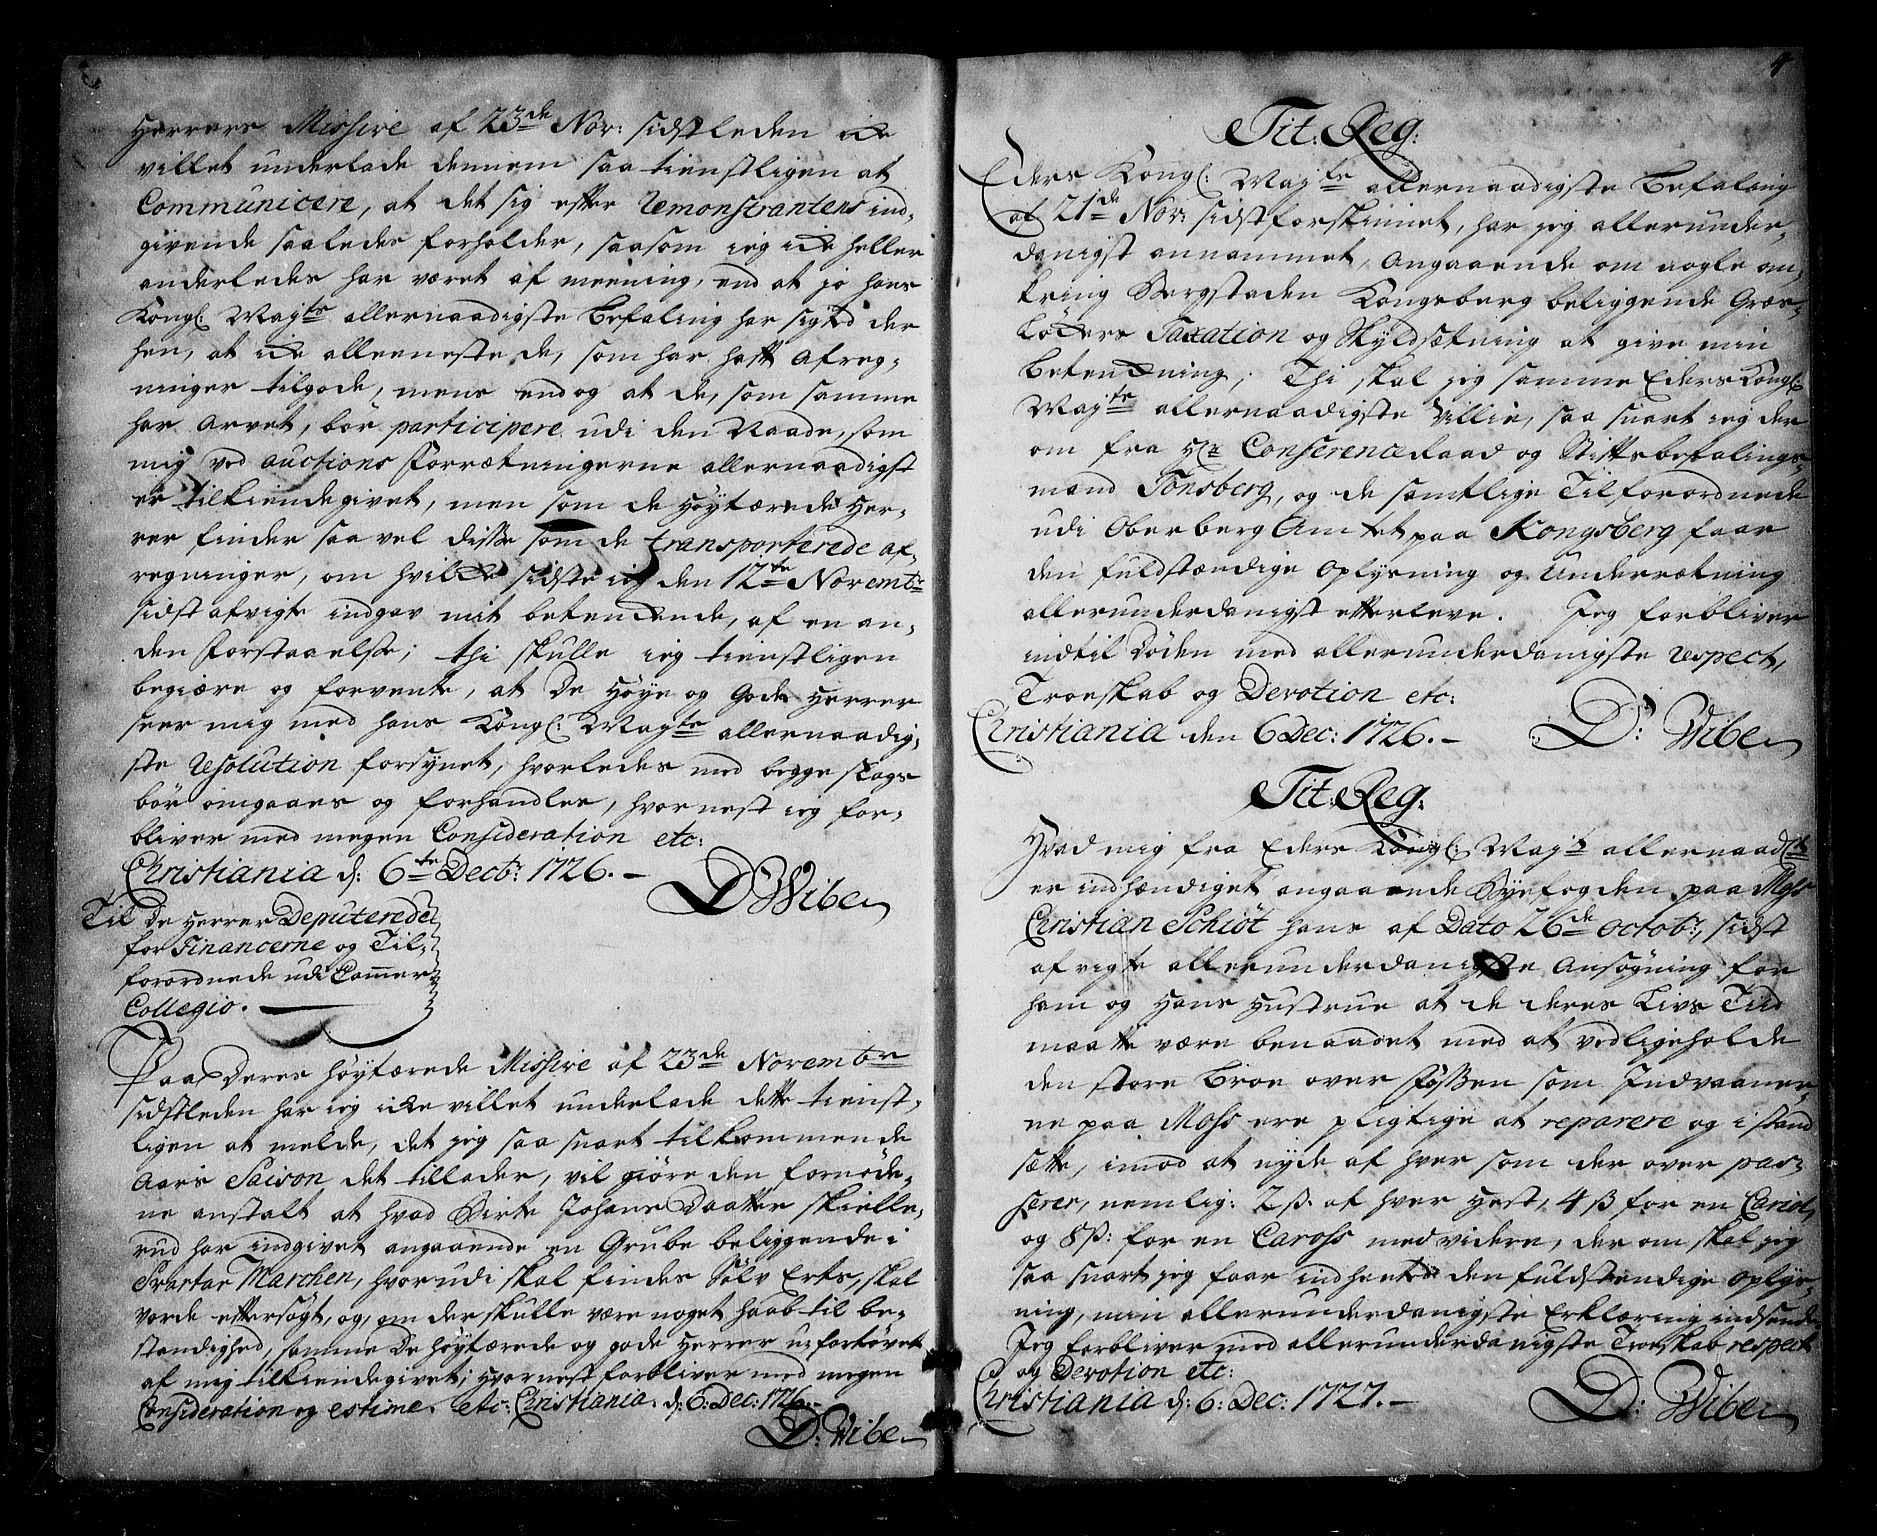 Herrers Missive af 23de Nov: sidstleden icke
villet underlade dennem saa tienstligen at
Communicere, at det sig efter Remonstrantens ind-
givende saaledes forholder, saasom ieg icke heller
anderledes har været af meening, end at jo hans
Kongl: Maytz allernaadigste Befaling har sigted der
hen, at icke alleeneste de, som har hafft Afreg-
ninger tilgode, mens endog at de, som samme
har Arvet, bör participere udi den Naade, som
mig ved auctions Forrætningerne allernaadigst
er tilkiendegivet, men som de Höytærede Her-
rer finder saa vel disse som de transporterede af-
regninger, om hvilcke sidste ieg den 12te Novembr
sidst afvigte indgav mit betenckende, af en an-
den Forstaaelse; thi skulle ieg tienstligen
begiære og forvente, at De Höye og Gode Herrer
seer mig med hans Kongl: Mayts allernaadig-
ste Resolution forsynet, hvorledes med begge slags
bör omgaaes og forhandles, hvornest ieg for-
bliver med megen Consideration etc:
Christiania d: 6te Decbr: 1726. –
D Wibe
Til De Herrer Deputerede
for Financerne og Til-
forordnede udi Cammer
Collegio.
Paa Deres höytærede Missive af 23de Novembr
sidstleden har ieg icke villet underlade dette tienst-
ligen at melde, det jeg saa snart tilkommende
Aars Saison det tillader, vil giöre den fornöde-
ne anstalt at hvad Birte Johans Daatter Skielle-
rud har indgivet angaaende en Grube beliggende i
Svartar Marchen, hvorudi skal findes Sölv Erts, skal
vorde eftersögt, og, om der skulle være noget haab til be-
standighed, samme De höytærede og gode Herrer ufortövet
af mig tilkiendegivet; hvornest forbliver med megen
Consideration og estime. etc: Christiania. d: 6: Dec: 1726. –
D: Wibe
4
Tit: Reg:
Eders Kongl: Mayts allernaadigste Befaling
af 21de Nov: sidstforskinnet, har jeg allerunder-
danigst annammet, Angaaende om nogle om-
kring Bergstaden Kongsberg beliggende Græs-
löckers Taxation og Skyldsætning at give min
betenckning; Thi skal jeg samme Eders Kongl:
Mayts allernaadigste Villie, saa snart ieg der
om fra Hr Conferenceraad og Stiftsbefalings-
mand Tonsberg, og de samtlige Tilforordnede
udi Oberberg Amtet paa Kongsberg faar
den fuldstændige Oplysning og Underrætning
allerunderdanigst efterleve. Jeg forbliver
indtil Döden med allerunderdanigste respect,
Troeskab og Devotion etc:
Christiania den 6 Dec: 1726. –
D: Wibe
Tit: Reg:
Hvad mig fra Eders Kongl: Mayts allernaadst
er indhændiget angaaende Byefogden paa Moss
Christian Schiöt hans af Dato 26de Octobr: sidst
afvigte allerunderdanigste Ansögning for
ham og Hans Hustrue at de deres Livs Tiid
maatte være benaadet med at vedligeholde
den store Broe over Fossen som Indvaaner-
ne paa Moss ere pligtige at reparere og i stand
sætte, imod at nyde af hver som der over pas-
serer, nemlig: 2 ß. af hver Hest, 4 ß for en Cariol,
og 8 ß: for en Caross med videre, der om skal jeg
saa snart jeg faar indhented den fuldstendige Oplys-
ning, min allerunderdanigste Erklæring indsende
Jeg forbliver med allerunderdanigste Troeskab respect
og Devotion etc:
Christiania d: 6: Dec: 1727. –
D: Wibe